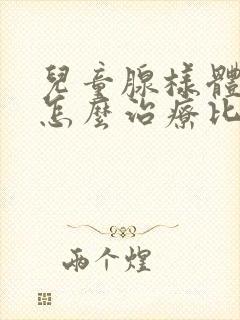 兒童腺樣體
怎麼治療比
兩个煋